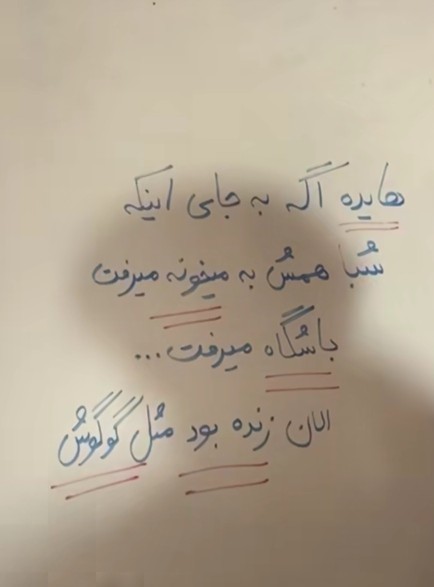 هایده اگه به جای اینکه
شبا همش به میخونه میرفت
باشگاه میرفت...
الان زنده بود مثل گوگوش